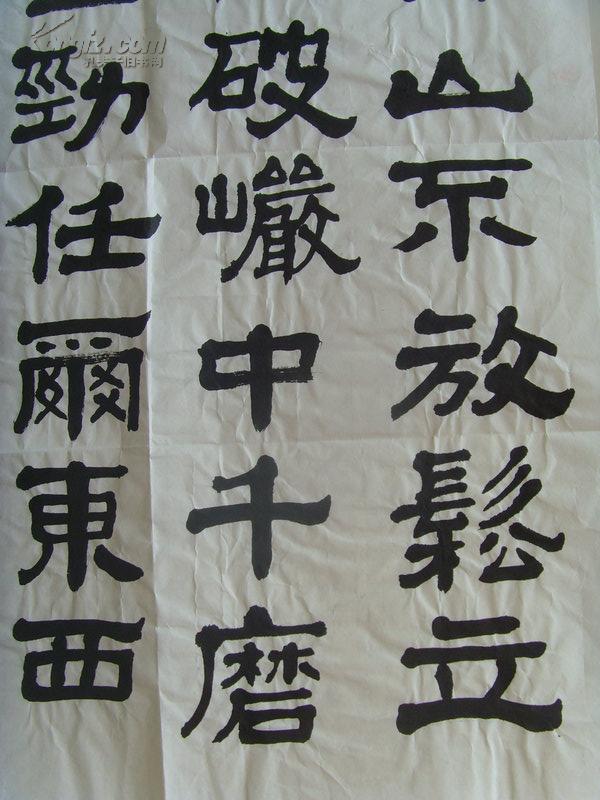 山不放鬆立
破巗中千磨
勁任爾東西
kongfz.com
孔夫子旧书网